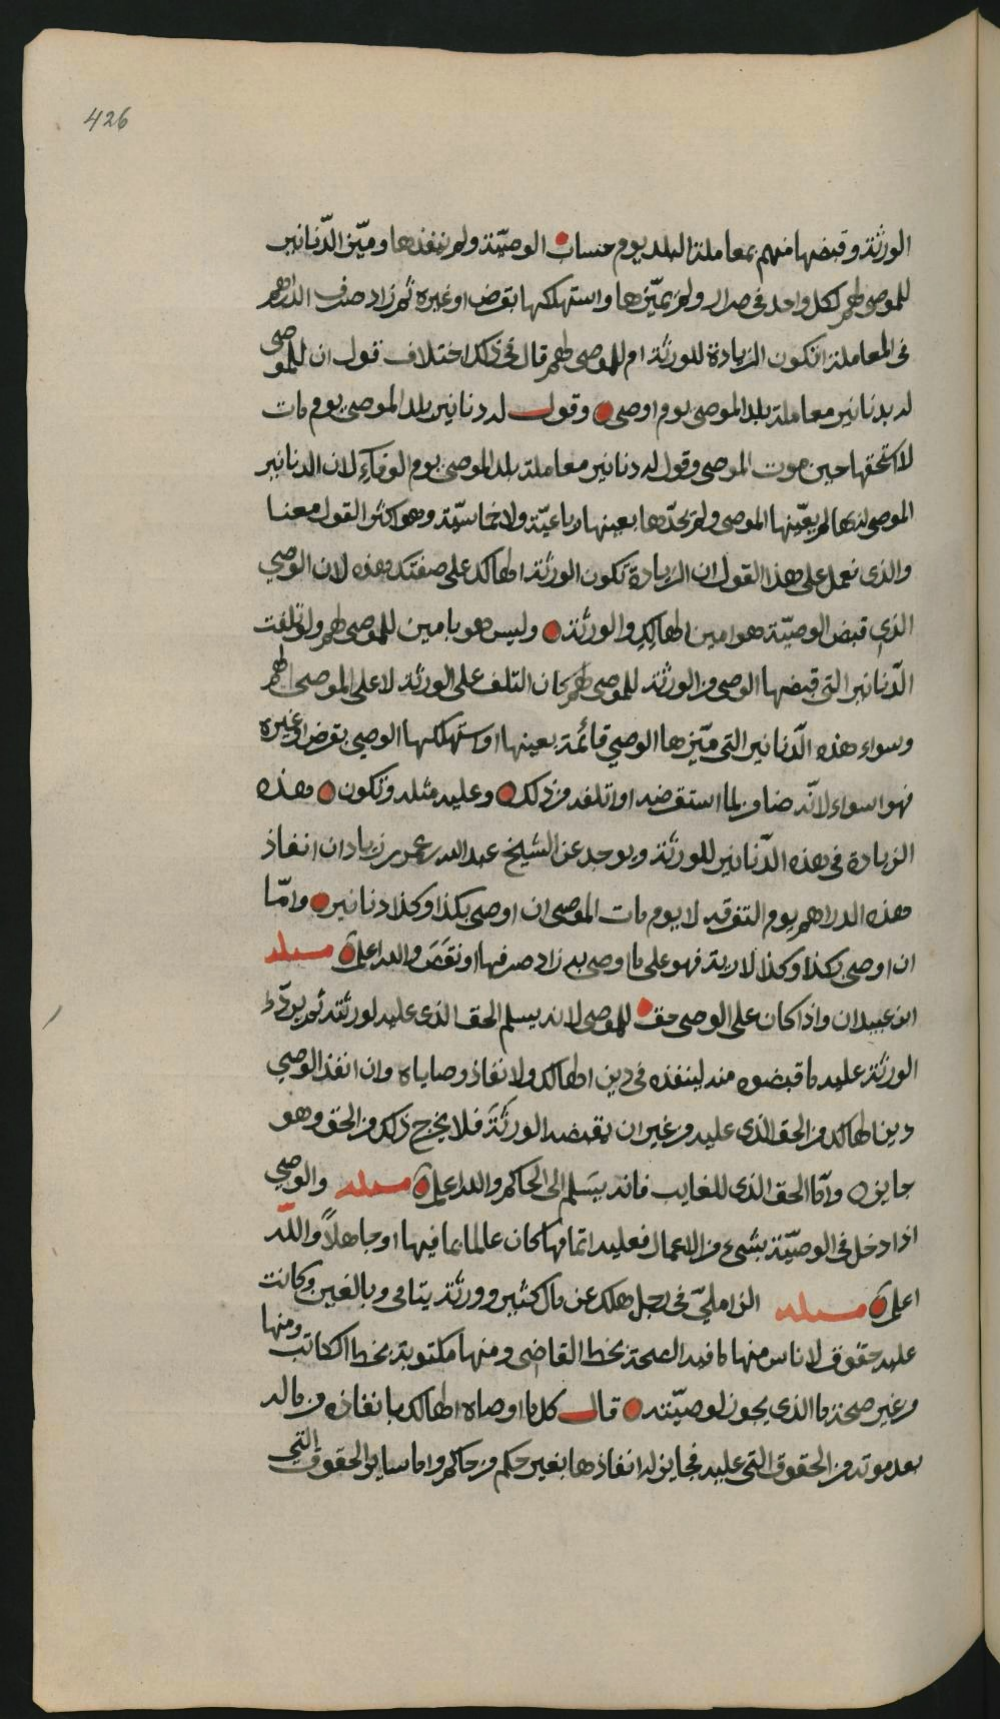 426
الورثة وقبضها منهم بمعاملة البلد يوم حساب الوصيّة ولم ينفذها وميّز الدّنانير
للموصى لهم لكل واحد في صرار ولم يميّزها واستهلكها بقرض او غيره ثم زاد صرف الدراهم
في المعاملة اتكون الزيادة للورثة ام للموصى لهم قال في ذلك اختلاف قول ان للموصى
له بدنانير معاملة بلد الموصى يوم اوصى وقول له دنانير بلد الموصى يوم مات
لاستحقها حين موت الموصى وقول له دنانير معاملة بلد الموصى يوم الوفاء لان الدنانير
الموصى له بها لم يعيّنها الموصى ولم يحدّها بعينها رباعيّة ولا خماسيّة وهو اكثر القول معنا
والذى نعمل على هذا القول ان الزيادة تكون الورثة الهالك على صفتك هذه لان الوصي
الذي قبض الوصيّة هو امين الهالك والورثة وليس هو بامين للموصى لهم ولو تلفت
الدّنانير التى قبضها الوصى من الورثة للموصى لهم كان التلف على الورثة لا على الموصى لهم
وسواء هذه الدّنانير التى ميّزها الوصي قائمة بعينها او استهلكها الوصي بقرض او غيره
فهو اسواء لانّه ضامن لما استقرضه او اتلفه من ذلك وعليه مثله وتكون هذه
الزيادة في هذه الدّنانير للورثة ويوجد عن الشيخ عبد الله بن عمر بن زياد ان انفاذ
هذه الدراهم يوم التفرقه لا يوم مات الموصى ان اوصى بكذا وكذا دنانير وامّا
ان اوصى بكذا وكذا لارية فهو على ما اوصى به زاد صرفها او نقَصَ والله اعلم مسئلة
ابن عبيدان واذا كان على الوصى حق للموصى لانه يسلم الحق الذى عليه لورثته ثم يردّ
الورثة عليه ما قبضوه منه لينفذه في دين الهالك ولا نفاذ وصاياه وان انفذ الوصي
دين الهالك من الحق الذى عليه من غير ان يقبضه الورثَةَ فلا يخرج ذلك من الحق وهو
جايز وامّا الحق الذى للغايب فانه يسَلم الى الحاكم والله اعلم مسئلة والوصي
اذا دخل في الوصيّة بشىء من الاعمال فعليه اتمامها كان عالما بما فيها او جاهلاً واللّه
اعلم مسئلة الزامليّ في رجل هلك عن مال كثير وورثة يتامى وبالغين وكانت
عليه حقوق لاناس منها ما فيه الصحة بخط القاضى ومنها مكتوبة بخط الكاتب ومنها
من غير صحة ما الذى يجوز لوصيّته قال كل ما اوصاه الهالك بانفاذه من ماله
بعد موته من الحقوق التى عليه فجايز له انفاذها بغير حكم من حاكم واما ساير الحقوق التي